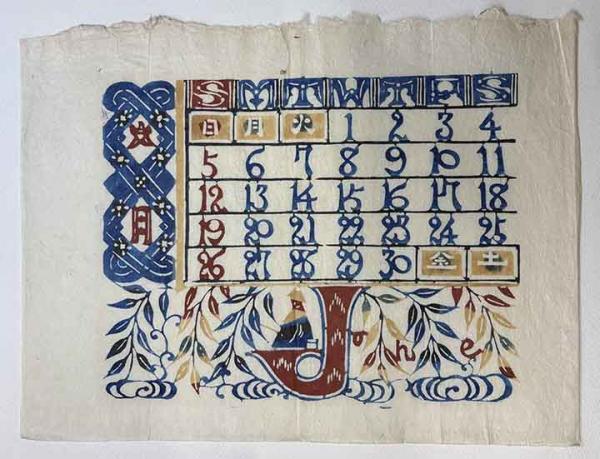 六月
S M T W T F S
日 月 火 1 2 3 4
5 6 7 8 9 10 11
12 13 14 15 16 17 18
19 20 21 22 23 24 25
26 27 28 29 30 金 土
June